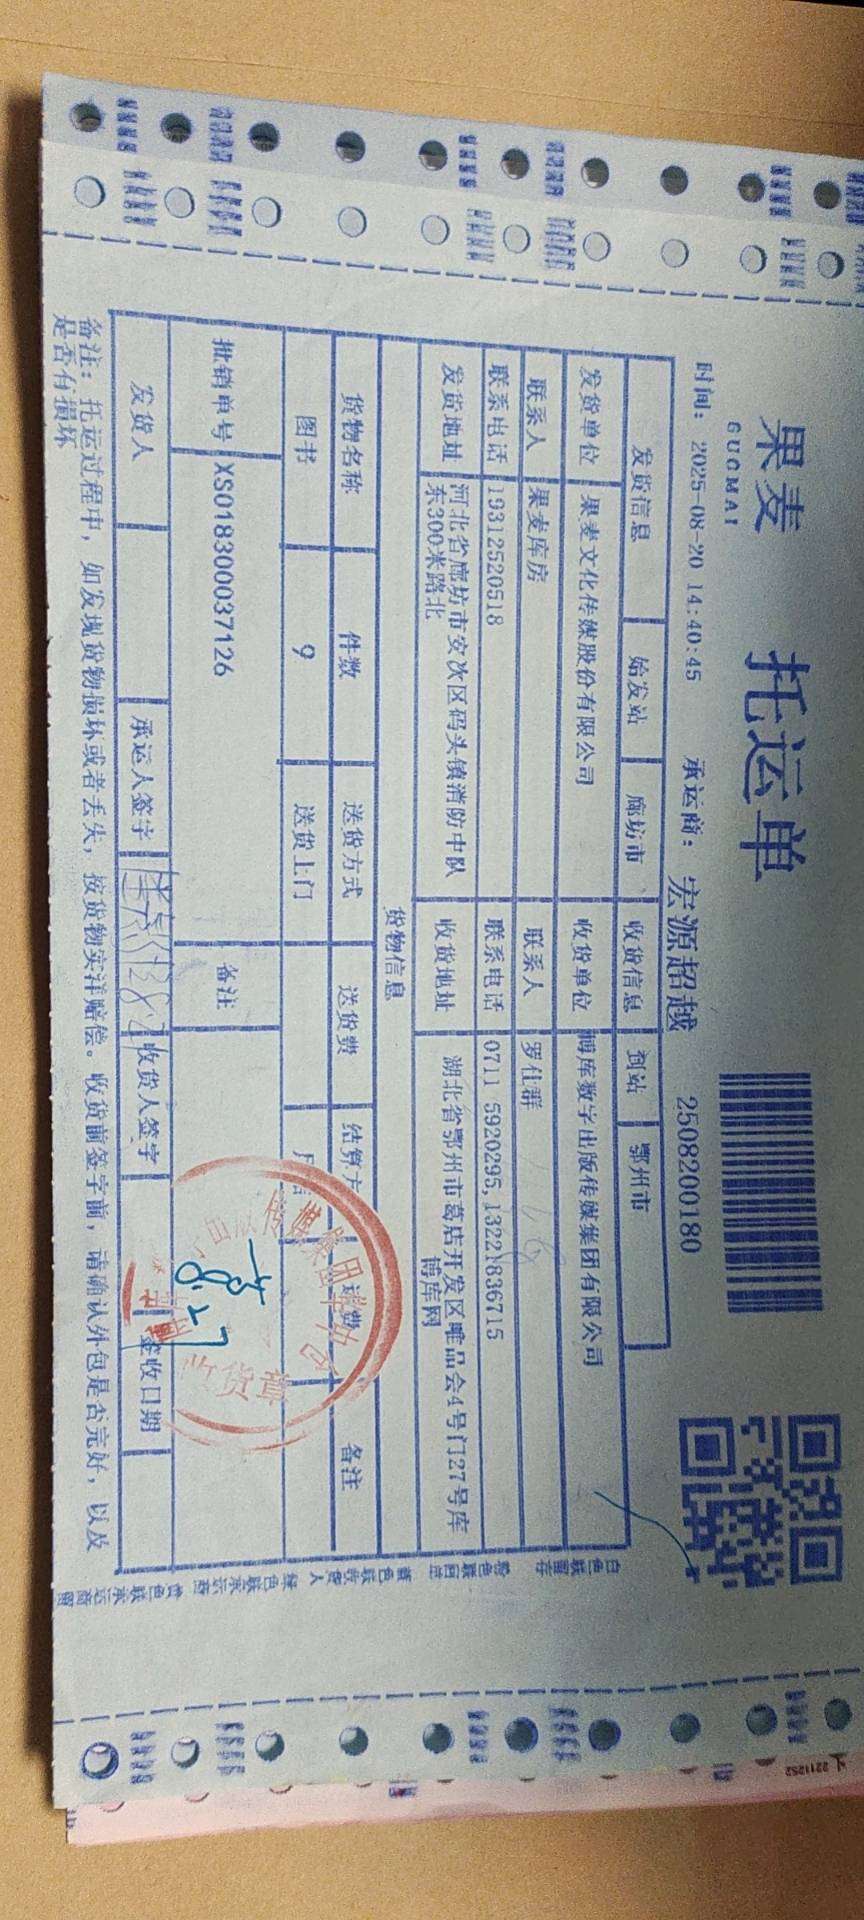 果麦 托运单
GUOMAI
时间：2025-08-20 14:40:45 承运商：宏源超越 2508200180
发货信息 始发站 廊坊市 收货信息 到站 鄂州市
发货单位 果麦文化传媒股份有限公司 收货单位 博库数字出版传媒集团有限公司
联系人 果麦库房 联系人 罗仕群
联系电话 19312520518 联系电话 0711 5920295,13221836715
发货地址 河北省廊坊市安次区码头镇消防中队 收货地址 湖北省鄂州市葛店开发区唯品会4号门27号库
东300米路北 博库网
货物信息
货物名称 件数 送货方式 送货费 结算方 运费 备注
图书 9 送货上门 月
批销单号 XS018300037126 备注
发货人 承运人签字 收货人签字 签收日期
备注：托运过程中，如发现货物损坏或者丢失，按货物实洋赔偿。收货前签字前，请确认外包是否完好，以及
是否有损坏
传媒集团
收货章
8.27
2211252